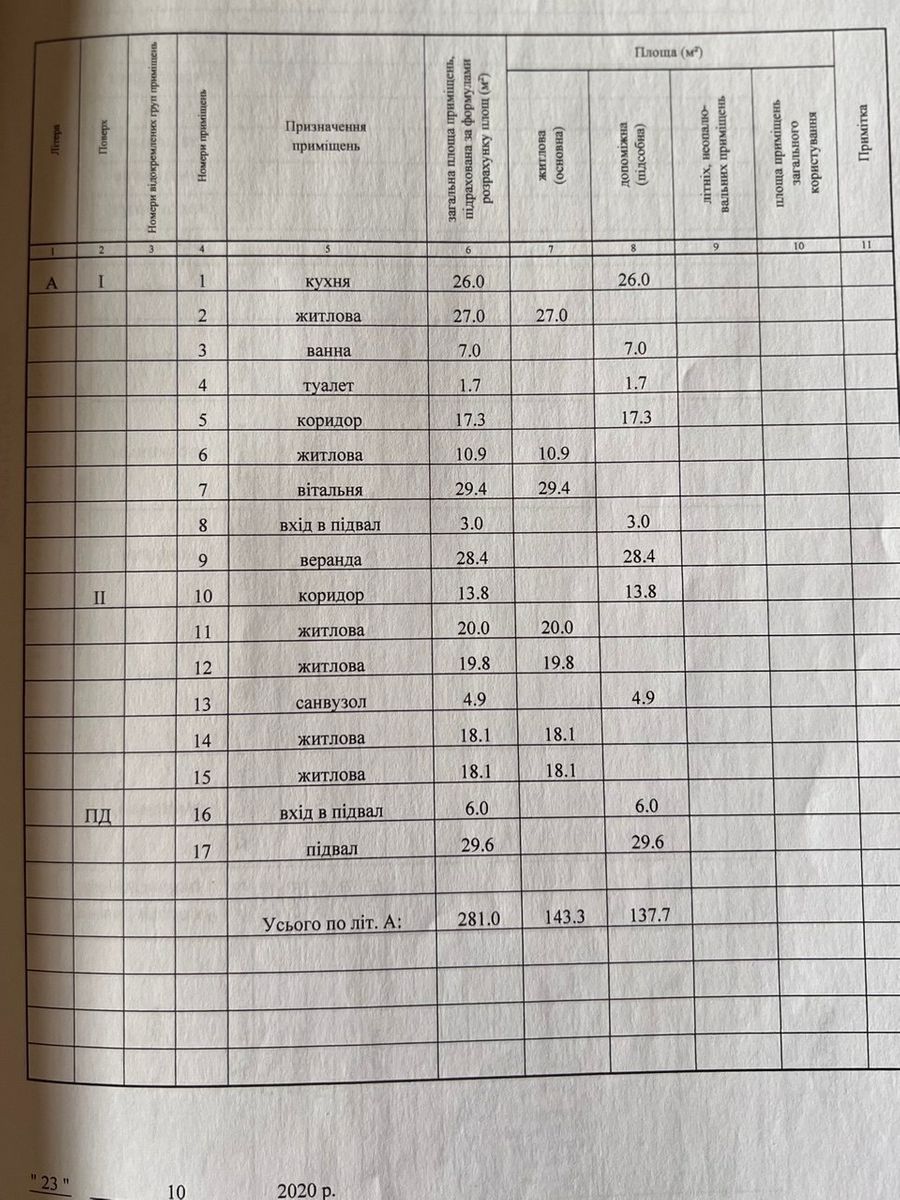 Літера
Поверх
Номери відокремлених груп приміщень
Номери приміщень
Призначення приміщень
загальна площа приміщень, підрахована за формулами розрахунку площ (м²)
Площа (м²)
житлова (основна)
допоміжна (підсобна)
літніх, неопалювальних приміщень
площа приміщень загального користування
Примітка
1 2 3 4 5 6 7 8 9 10 11
А І 1 кухня 26.0 26.0
2 житлова 27.0 27.0
3 ванна 7.0 7.0
4 туалет 1.7 1.7
5 коридор 17.3 17.3
6 житлова 10.9 10.9
7 вітальня 29.4 29.4
8 вхід в підвал 3.0 3.0
9 веранда 28.4 28.4
ІІ 10 коридор 13.8 13.8
11 житлова 20.0 20.0
12 житлова 19.8 19.8
13 санвузол 4.9 4.9
14 житлова 18.1 18.1
15 житлова 18.1 18.1
ПД 16 вхід в підвал 6.0 6.0
17 підвал 29.6 29.6
Усього по літ. А: 281.0 143.3 137.7
" 23 " 10 2020 р.